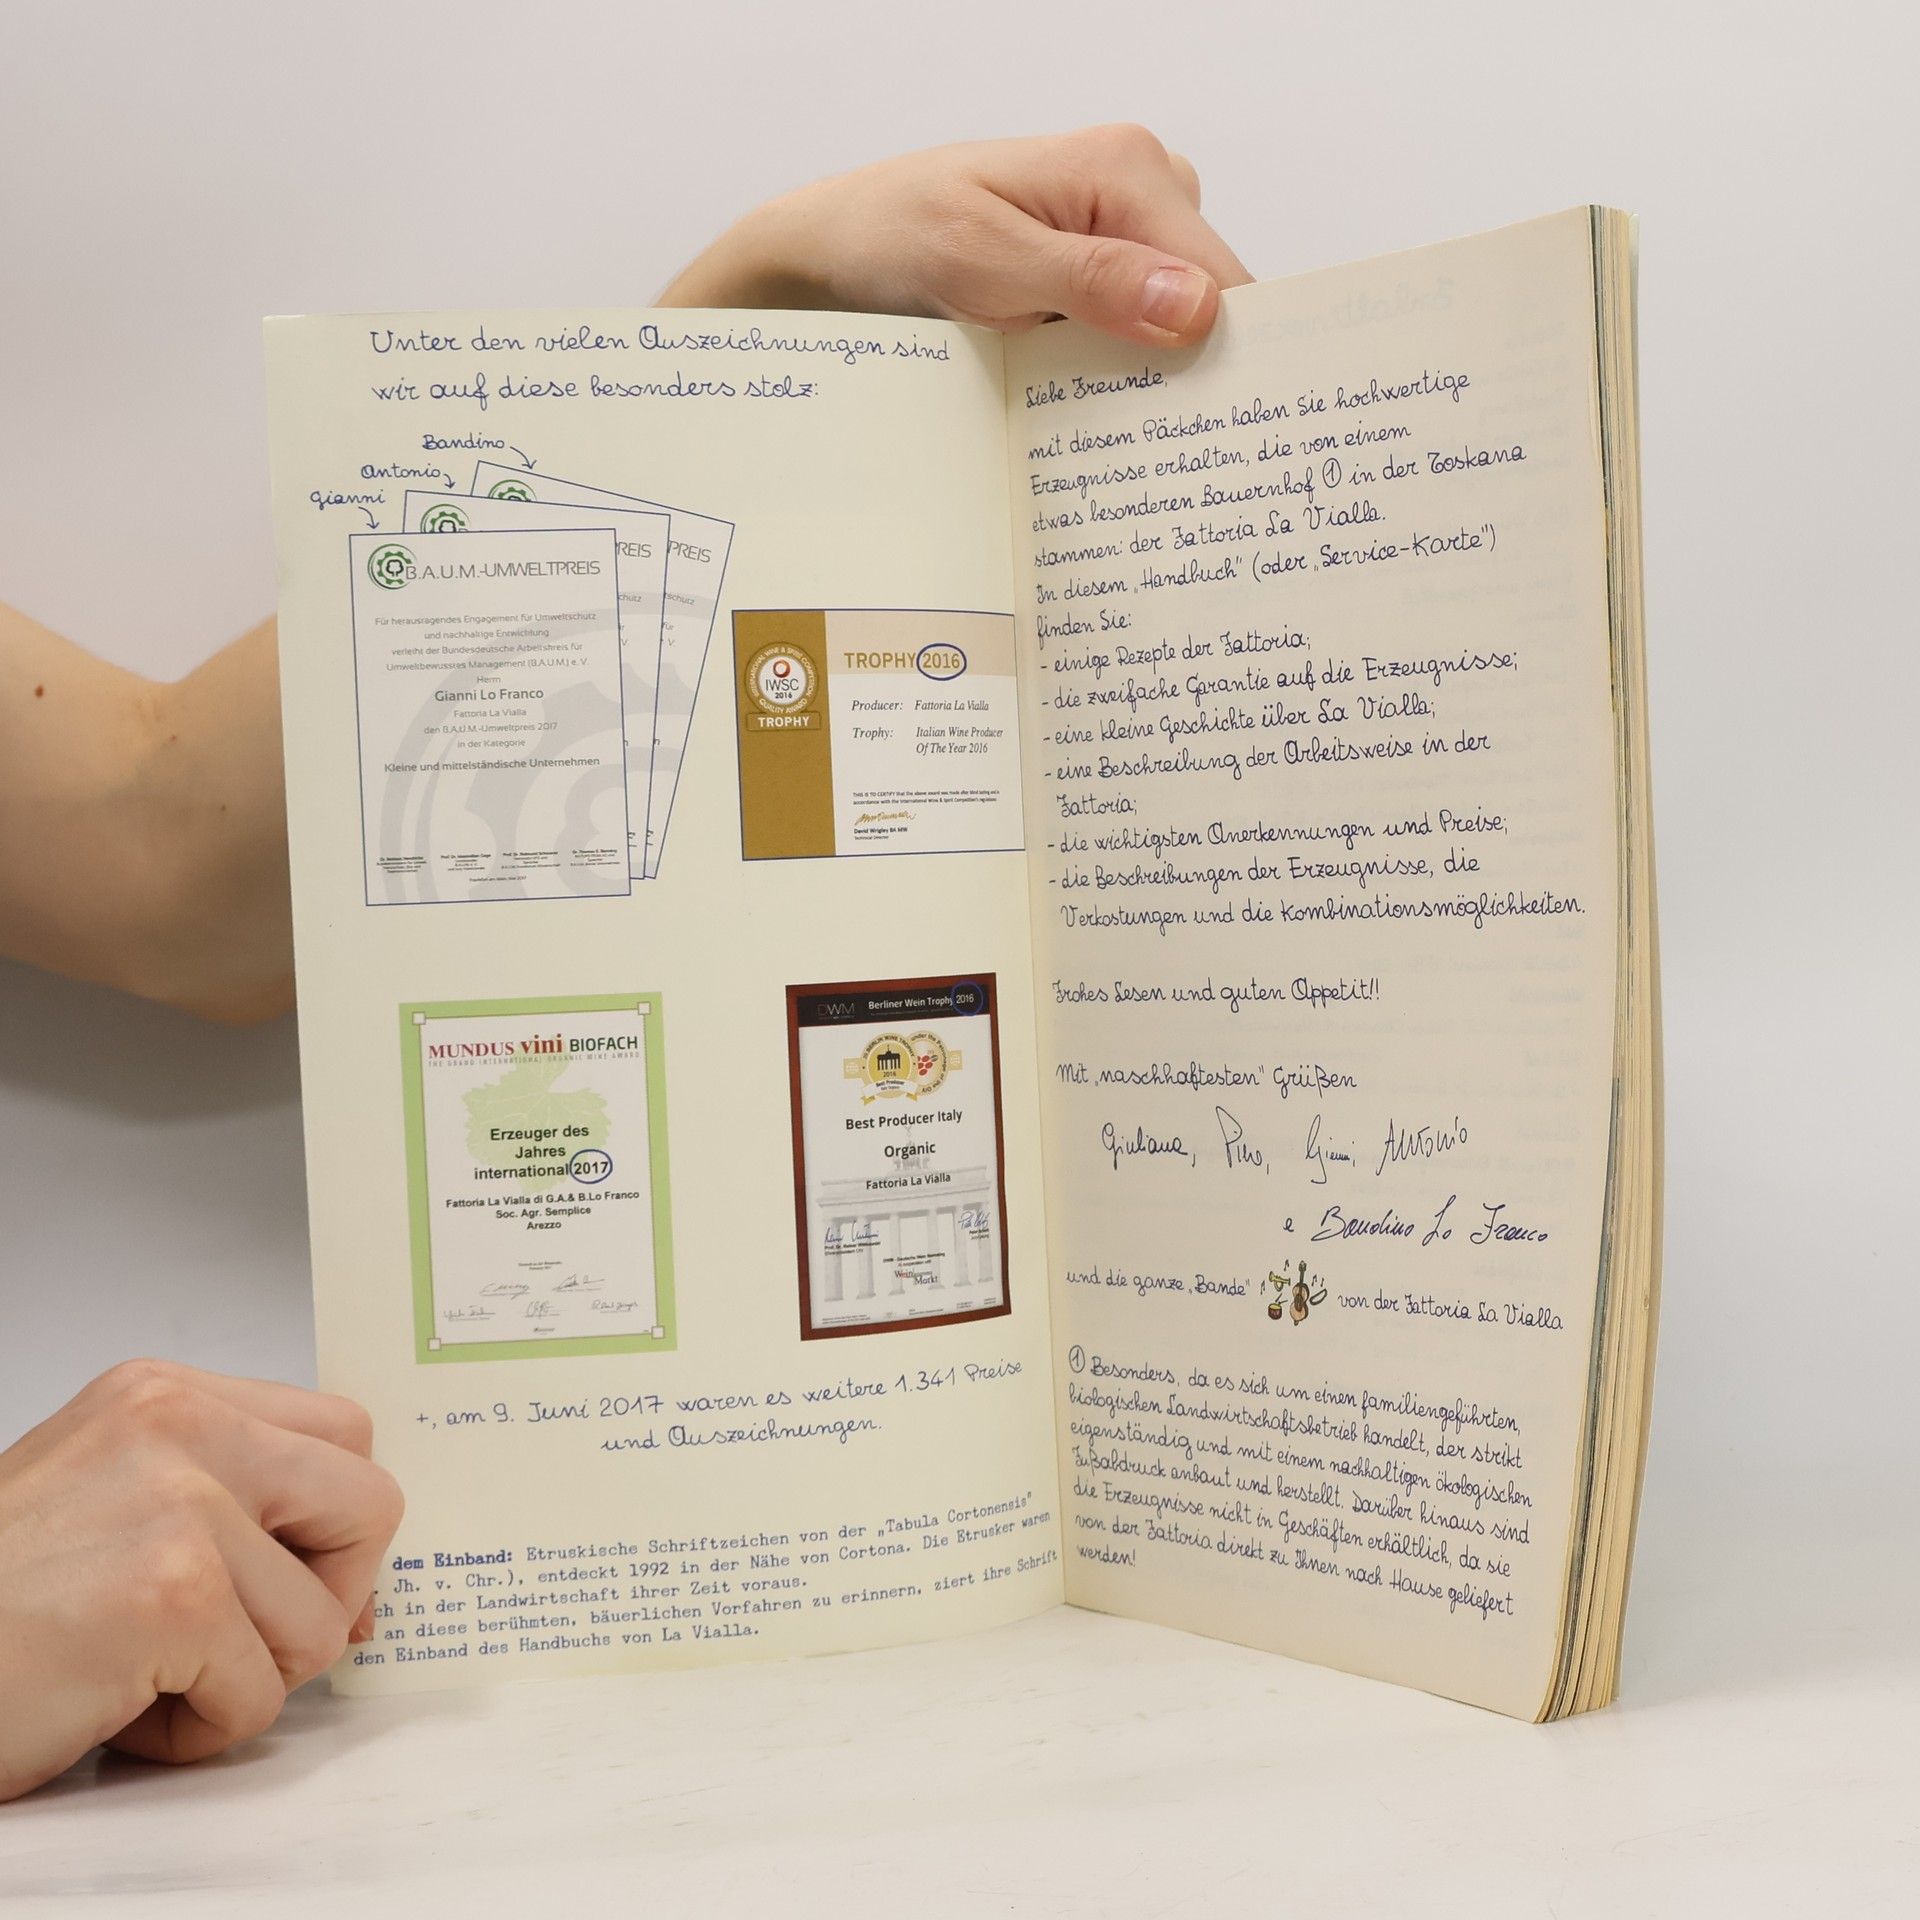 Unter den vielen Auszeichnungen sind
wir auf diese besonders stolz:
Bandino
Antonio
Gianni
PREIS
PREIS
B.A.U.M.-UMWELTPREIS
Für herausragendes Engagement für Umweltschutz
und nachhaltige Entwicklung
verleiht der Bundesdeutsche Arbeitskreis für
Umweltbewusstes Management (B.A.U.M.) e. V.
Herrn
Gianni Lo Franco
Fattoria La Vialla
den B.A.U.M.-Umweltpreis 2017
in der Kategorie
Kleine und mittelständische Unternehmen
INTERNATIONAL WINE & SPIRIT COMPETITION
IWSC
2016
QUALITY AWARD
TROPHY
TROPHY 2016
Producer: Fattoria La Vialla
Trophy: Italian Wine Producer
Of The Year 2016
THIS IS TO CERTIFY that the above award was made after blind tasting and in
accordance with the International Wine & Spirit Competition's regulations
David Wrigley BA MW
Technical Director
MUNDUS vini BIOFACH
THE GRAND INTERNATIONAL ORGANIC WINE AWARD
Erzeuger des
Jahres
international 2017
Fattoria La Vialla di G.A.& B.Lo Franco
Soc. Agr. Semplice
Arezzo
DWM Berliner Wein Trophy 2016
2016
Best Producer
Best Producer Italy
Organic
Fattoria La Vialla
Wein Markt
+, am 9. Juni 2017 waren es weitere 1.341 Preise
und Auszeichnungen.
dem Einband: Etruskische Schriftzeichen von der „Tabula Cortonensis"
. Jh. v. Chr.), entdeckt 1992 in der Nähe von Cortona. Die Etrusker waren
ch in der Landwirtschaft ihrer Zeit voraus.
an diese berühmten, bäuerlichen Vorfahren zu erinnern, ziert ihre Schrift
den Einband des Handbuchs von La Vialla.
Liebe Freunde,
mit diesem Päckchen haben Sie hochwertige
Erzeugnisse erhalten, die von einem
etwas besonderen Bauernhof ① in der Toskana
stammen: der Fattoria La Vialla.
In diesem „Handbuch" (oder „Service-Karte")
finden Sie:
- einige Rezepte der Fattoria;
- die zweifache Garantie auf die Erzeugnisse;
- eine kleine Geschichte über La Vialla;
- eine Beschreibung der Arbeitsweise in der
Fattoria;
- die wichtigsten Anerkennungen und Preise;
- die Beschreibungen der Erzeugnisse, die
Verkostungen und die Kombinationsmöglichkeiten.
Frohes Lesen und guten Appetit!!
Mit „naschhaftesten" Grüßen
Giuliana, Piero, Gianni, Antonio
e Bandino Lo Franco
und die ganze „Bande" von der Fattoria La Vialla
① Besonders, da es sich um einen familiengeführten,
biologischen Landwirtschaftsbetrieb handelt, der strikt
eigenständig und mit einem nachhaltigen ökologischen
Fußabdruck anbaut und herstellt. Darüber hinaus sind
die Erzeugnisse nicht in Geschäften erhältlich, da sie
von der Fattoria direkt zu Ihnen nach Hause geliefert
werden!